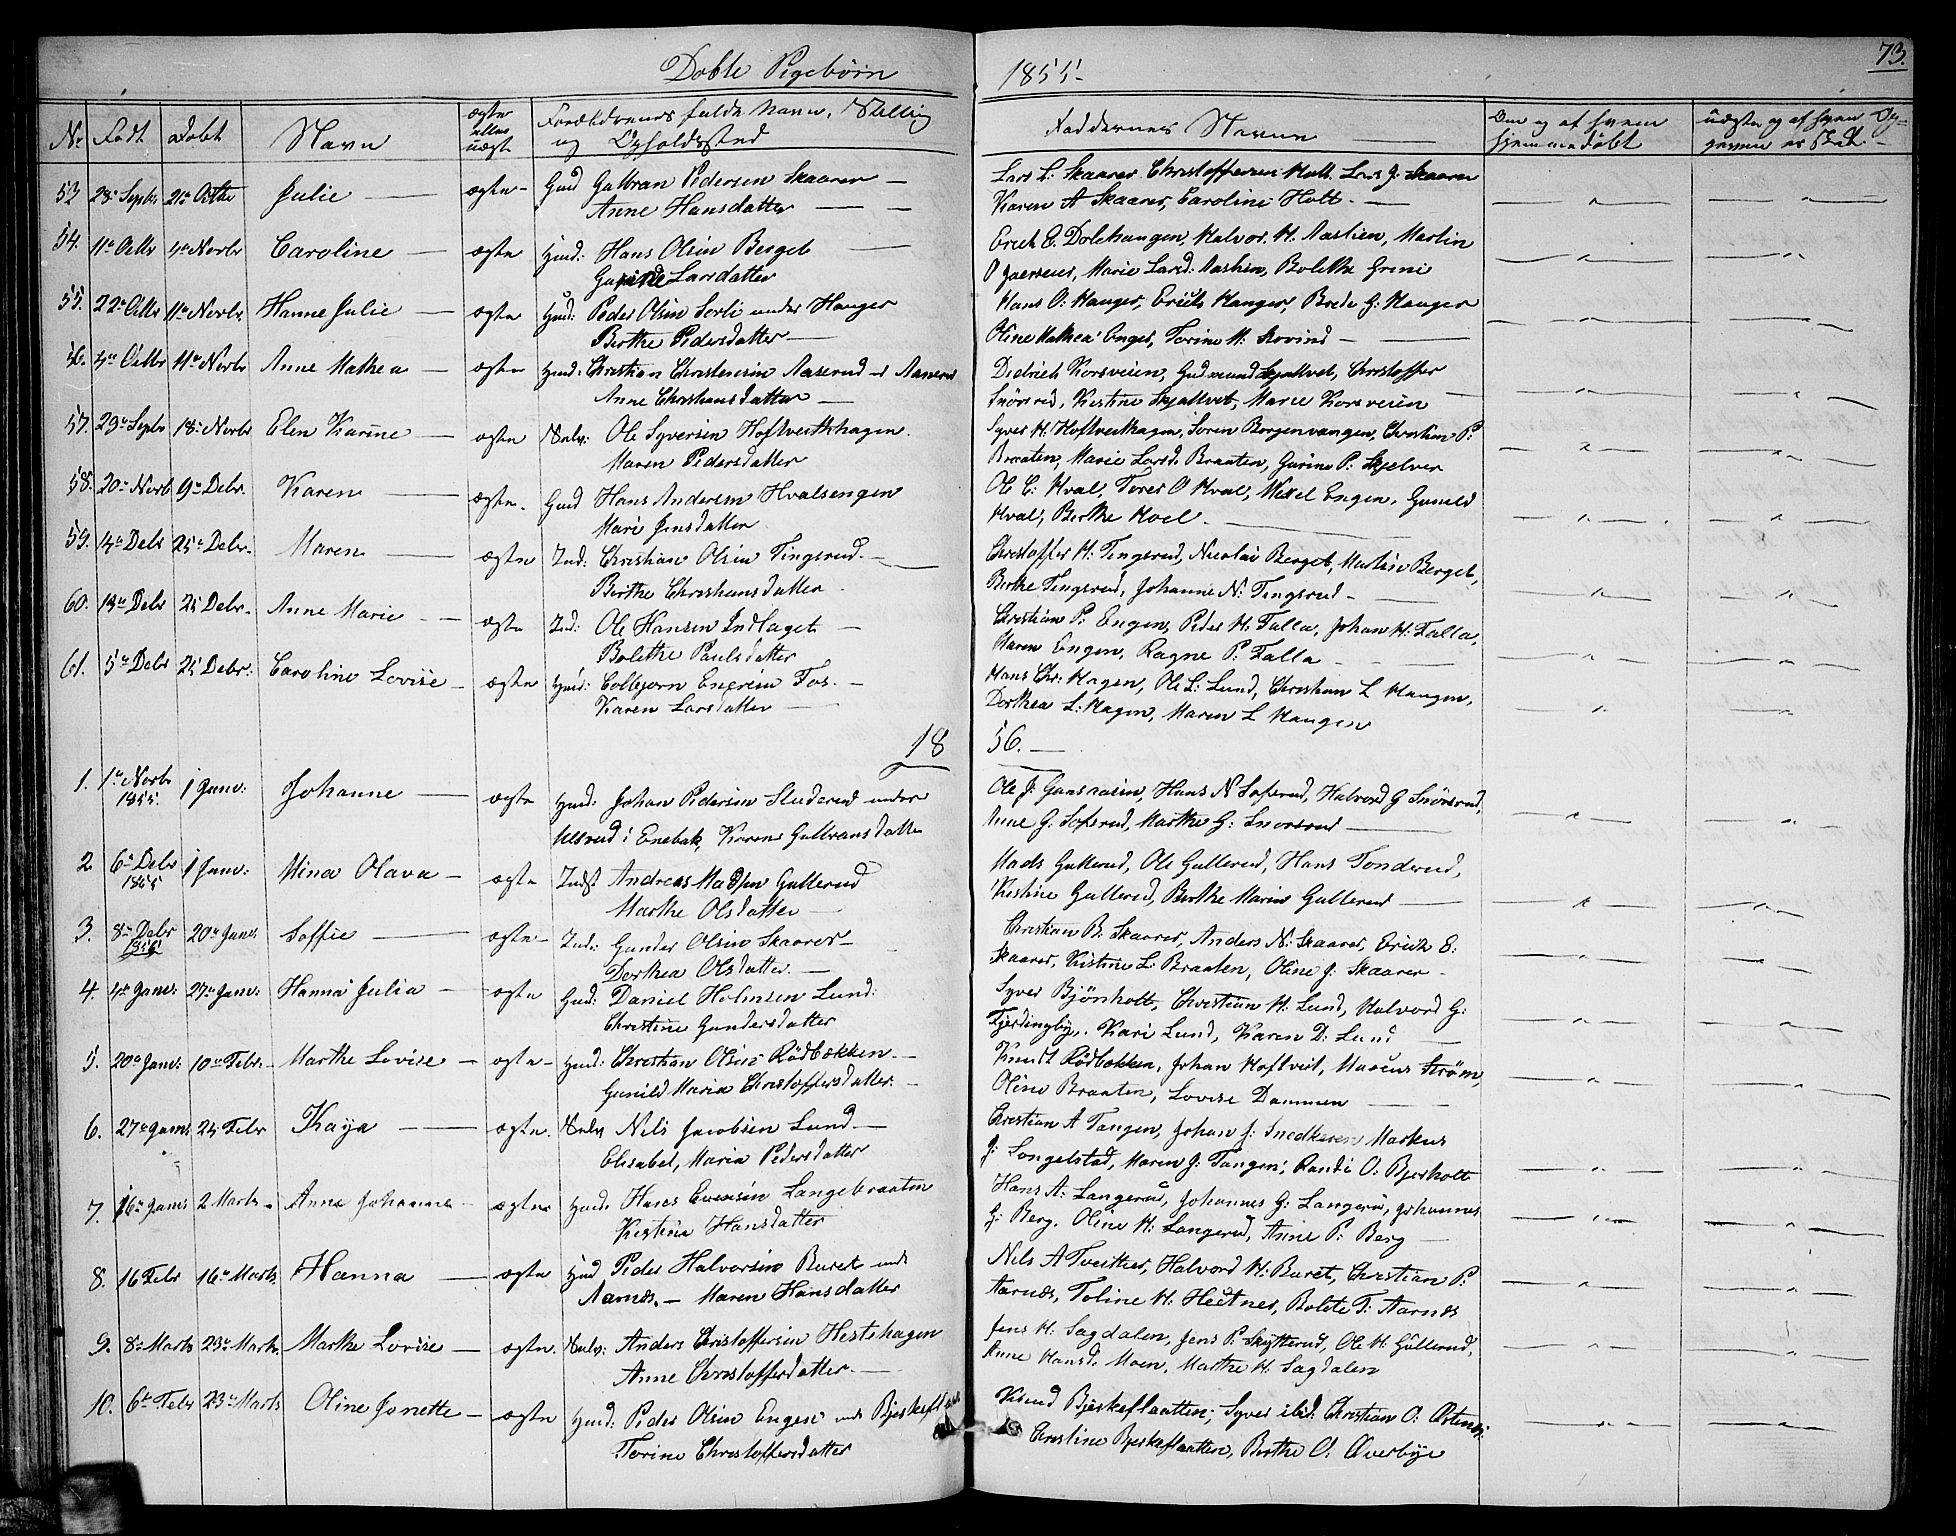 73.
Døbte Pigebørn 1855
No Født Døbt Navn ægte eller uægte Forældrenes fulde Navn, Stilling og Opholdssted Faddernes Navne Om og af hvem hjemmedøbt
53 28de Septbr 21de Octbr Julie ægte Gmd Gulbran Pedersen Skaarer Anne Hansdatter
Lars L: Skaarer Christoffersen Holt Lars J. Skaarer
Karen A Skaarer, Caroline Holt
54. 11te Octbr 4de Novbr Caroline ægte Hmd: Hans Olsen Berget Larsdatter
Erick E. Dolehaugen, Halvor H. Aastien, Martin
Marie Larsd: Aastien, Bolethe Greni
55. 22de Octbr 11te Novbr Hanne Julie ægte Hmd: Peder Olsen Sorli under Hauger Berthe Pedersdatter
Hans O: Hauger, Erick Hauger, Brede G: Hauger
Oline Mathea Enget, Torine M: Rovind
56. 4de Octbr 11te Novbr Anne Mathea ægte Hmd: Christian Christensen Aaserud Anne Christiansdatter
Diedrich Korsveien, Gudmund Skjatvet, Christoffer
Snorsrud, Kistine Skjatvet, Marie Korsveien
57. 29de Septbr 18de Novbr Elen Karine ægte Selv: Ole Syversen Hoftvedthagen Maren Pedersdatter
Syver H: Hoftvethagen, Soren Borgenvangen, Christian P:
Braaten, Marie Larsd: Braaten, Gurine P. Skjelver
58. 20de Novb 9de Debr. Karen ægte Gmd Hans Andersen Hvalsengen Mari Jensdatter
Ole C: Hval, Tores O Hval, Wexel Engen, Gunild
Hval, Berthe Hoel
59. 14de Debr 25de Debr. Maren ægte Ind: Christian Olsen Tingsrud Berthe Christiansdatter
Christoffer H: Tingsrud, Nicolai Berget, Mathise Berget,
Berthe Tingsrud, Johanne N: Tingsrud
60. 13de Debr 25 Debr. Anne Marie ægte Ind: Ole Hansen Indlaget Bolethe Paulsdatter
Christian P: Engen, Peder H: Falla, Johan H: Falla,
Maren Engen, Ragne P: Falla
61. 5te Debr 25 Debr: Caroline Lovise ægte Hmd: Colbjorn Engersen Fos Karen Larsdatter
Hans Chr: Hagen, Ole L: Lund, Christian L Haugen,
Dorthea L: Hagen, Maren L Haugen
1856.
1. 1te Novbr 1855 1 Janv: Johanne ægte Hmd: Johan Pedersen Sluderud under Ulsrud i Enebak, Karen Gulbransdatter
Ole J: Gaasnasen, Hans N Soferud, Halvord G Snorsrud,
Anne G: Soferud, Marthe G: Snorsrud
2. 6te Debr 1855 1 Janv: Mina Olava ægte Indst Andreas Madsen Gullerud Marthe Olsdatter
Mads Gullerud, Ole Gullerud, Hans Tonderud,
Kistine Gullerud, Berthe Marie Gullerud
3. 8de Debr 1855 20de Janv: Soffie ægte Ind: Gunder Olsen Skaarer Dorthea Olsdatter
Christian B. Skaarer, Anders N: Skaarer, Erick E:
Skaarer, Kistine L: Braaten, Oline J: Skaarer
4. 4de Janv: 27de Janv: Hanna Julia ægte Gmd: Daniel Holmsen Lund: Christine Gundersdatter
Syver Bjönholt, Christian H: Lund, Halvord G:
Fjerdingby, Kari Lund, Karen D: Lund
5. 20de Janv: 10de Febr. Marthe Lovise ægte Hmd: Christian Olsen Rödbækken Gunild Maria Christoffersdatter
Knudt Rödbækken, Johan Hoftvet, Marcus Ström,
Oline Braaten, Lovise Dammen
6. 27de Janv 24 Febr Kaja ægte. Selv Nils Jacobsen Lund Elisabet, Maria Pedersdatter
Christian A Tangen, Johan J: Snedkeren Markus
J: Longelstad, Maren J: Tangen, Randi O: Bjerholt
7. 16de Janv 2 Marts Anne Johanne ægte Hmd. Hans Evensen Langebraaten Kistine Hansdatter
Hans A: Langerud, Johannes G: Langerud, Johannes
G: Berg. Oline H: Langerud, Anne P: Berg
8. 16 Febr 16de Marts Hanna ægte Hmd Peder Halvorsen Buret und Aarnæs, Maren Hansdatter
Nils A Tveitter, Halvord H: Buret, Christian P:
Aarnæs, Toline H: Heitner, Bolete T: Aarnæs
9. 8de Marts 23de Marts. Marthe Lovise ægte. Selv: Anders Christoffersen Hestehagen Anne Christoffersdatter
Jens H: Sagdalen, Jens P: Skytterud, Ole H: Gullerud,
Anne Hansd. Moen, Marthe H: Sagdalen
10. 6te Febr 23de Marts Oline Jonette ægte Hmd: Peder Olsen Engen und Torine Christoffersdatter
Knud Bjerkeflaatten, Syver ibid: Christian O:
Christine Bjerkeflaatten, Berthe O: Overbye